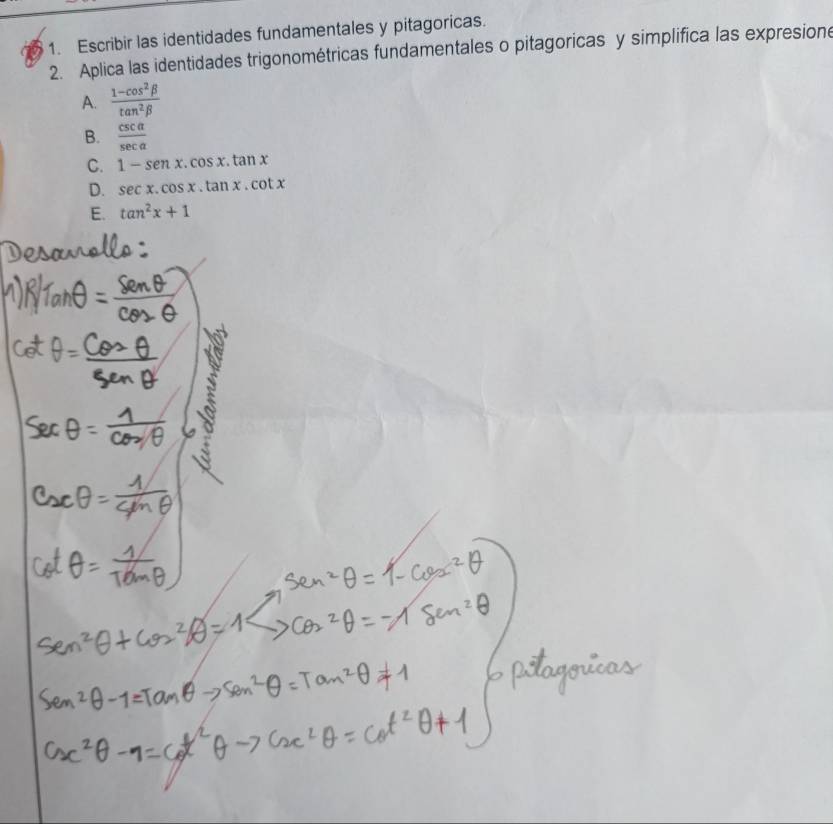 1. Escribir las identidades fundamentales y pitagoricas.
2. Aplica las identidades trigonométricas fundamentales o pitagoricas y simplifica las expresione
A. \frac{1-cos²β}{tan²β}
B. \frac{csc α}{sec α}
C. 1 − sen x. cos x. tan x
D. sec x. cos x . tan x . cot x
E. tan²x + 1
Desarrollo:
1) R/ Tan θ = \frac{Sen θ}{cos θ}
cot θ = \frac{Cos θ}{Sen θ}
Sec θ = \frac{1}{cos θ}
Csc θ = \frac{1}{sen θ}
cot θ = \frac{1}{Tan θ}
fundamentales
Sen²θ + Cos²θ = 1
Sen²θ = 1 - Cos²θ
Cos²θ = -1 Sen²θ
Sen²θ - 1 = Tan θ → Sen²θ = Tan²θ + 1
Csc²θ - 1 = Cot²θ → Csc²θ = Cot²θ + 1
pitagoricas